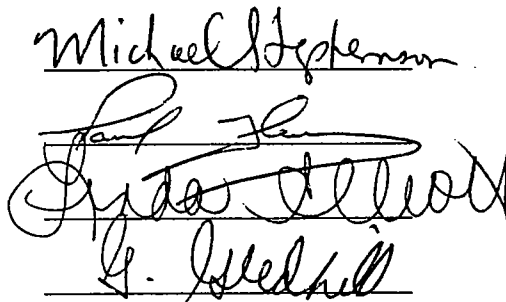 Michael Stephenson
Paul
Linda Elliott
G. Gledhill